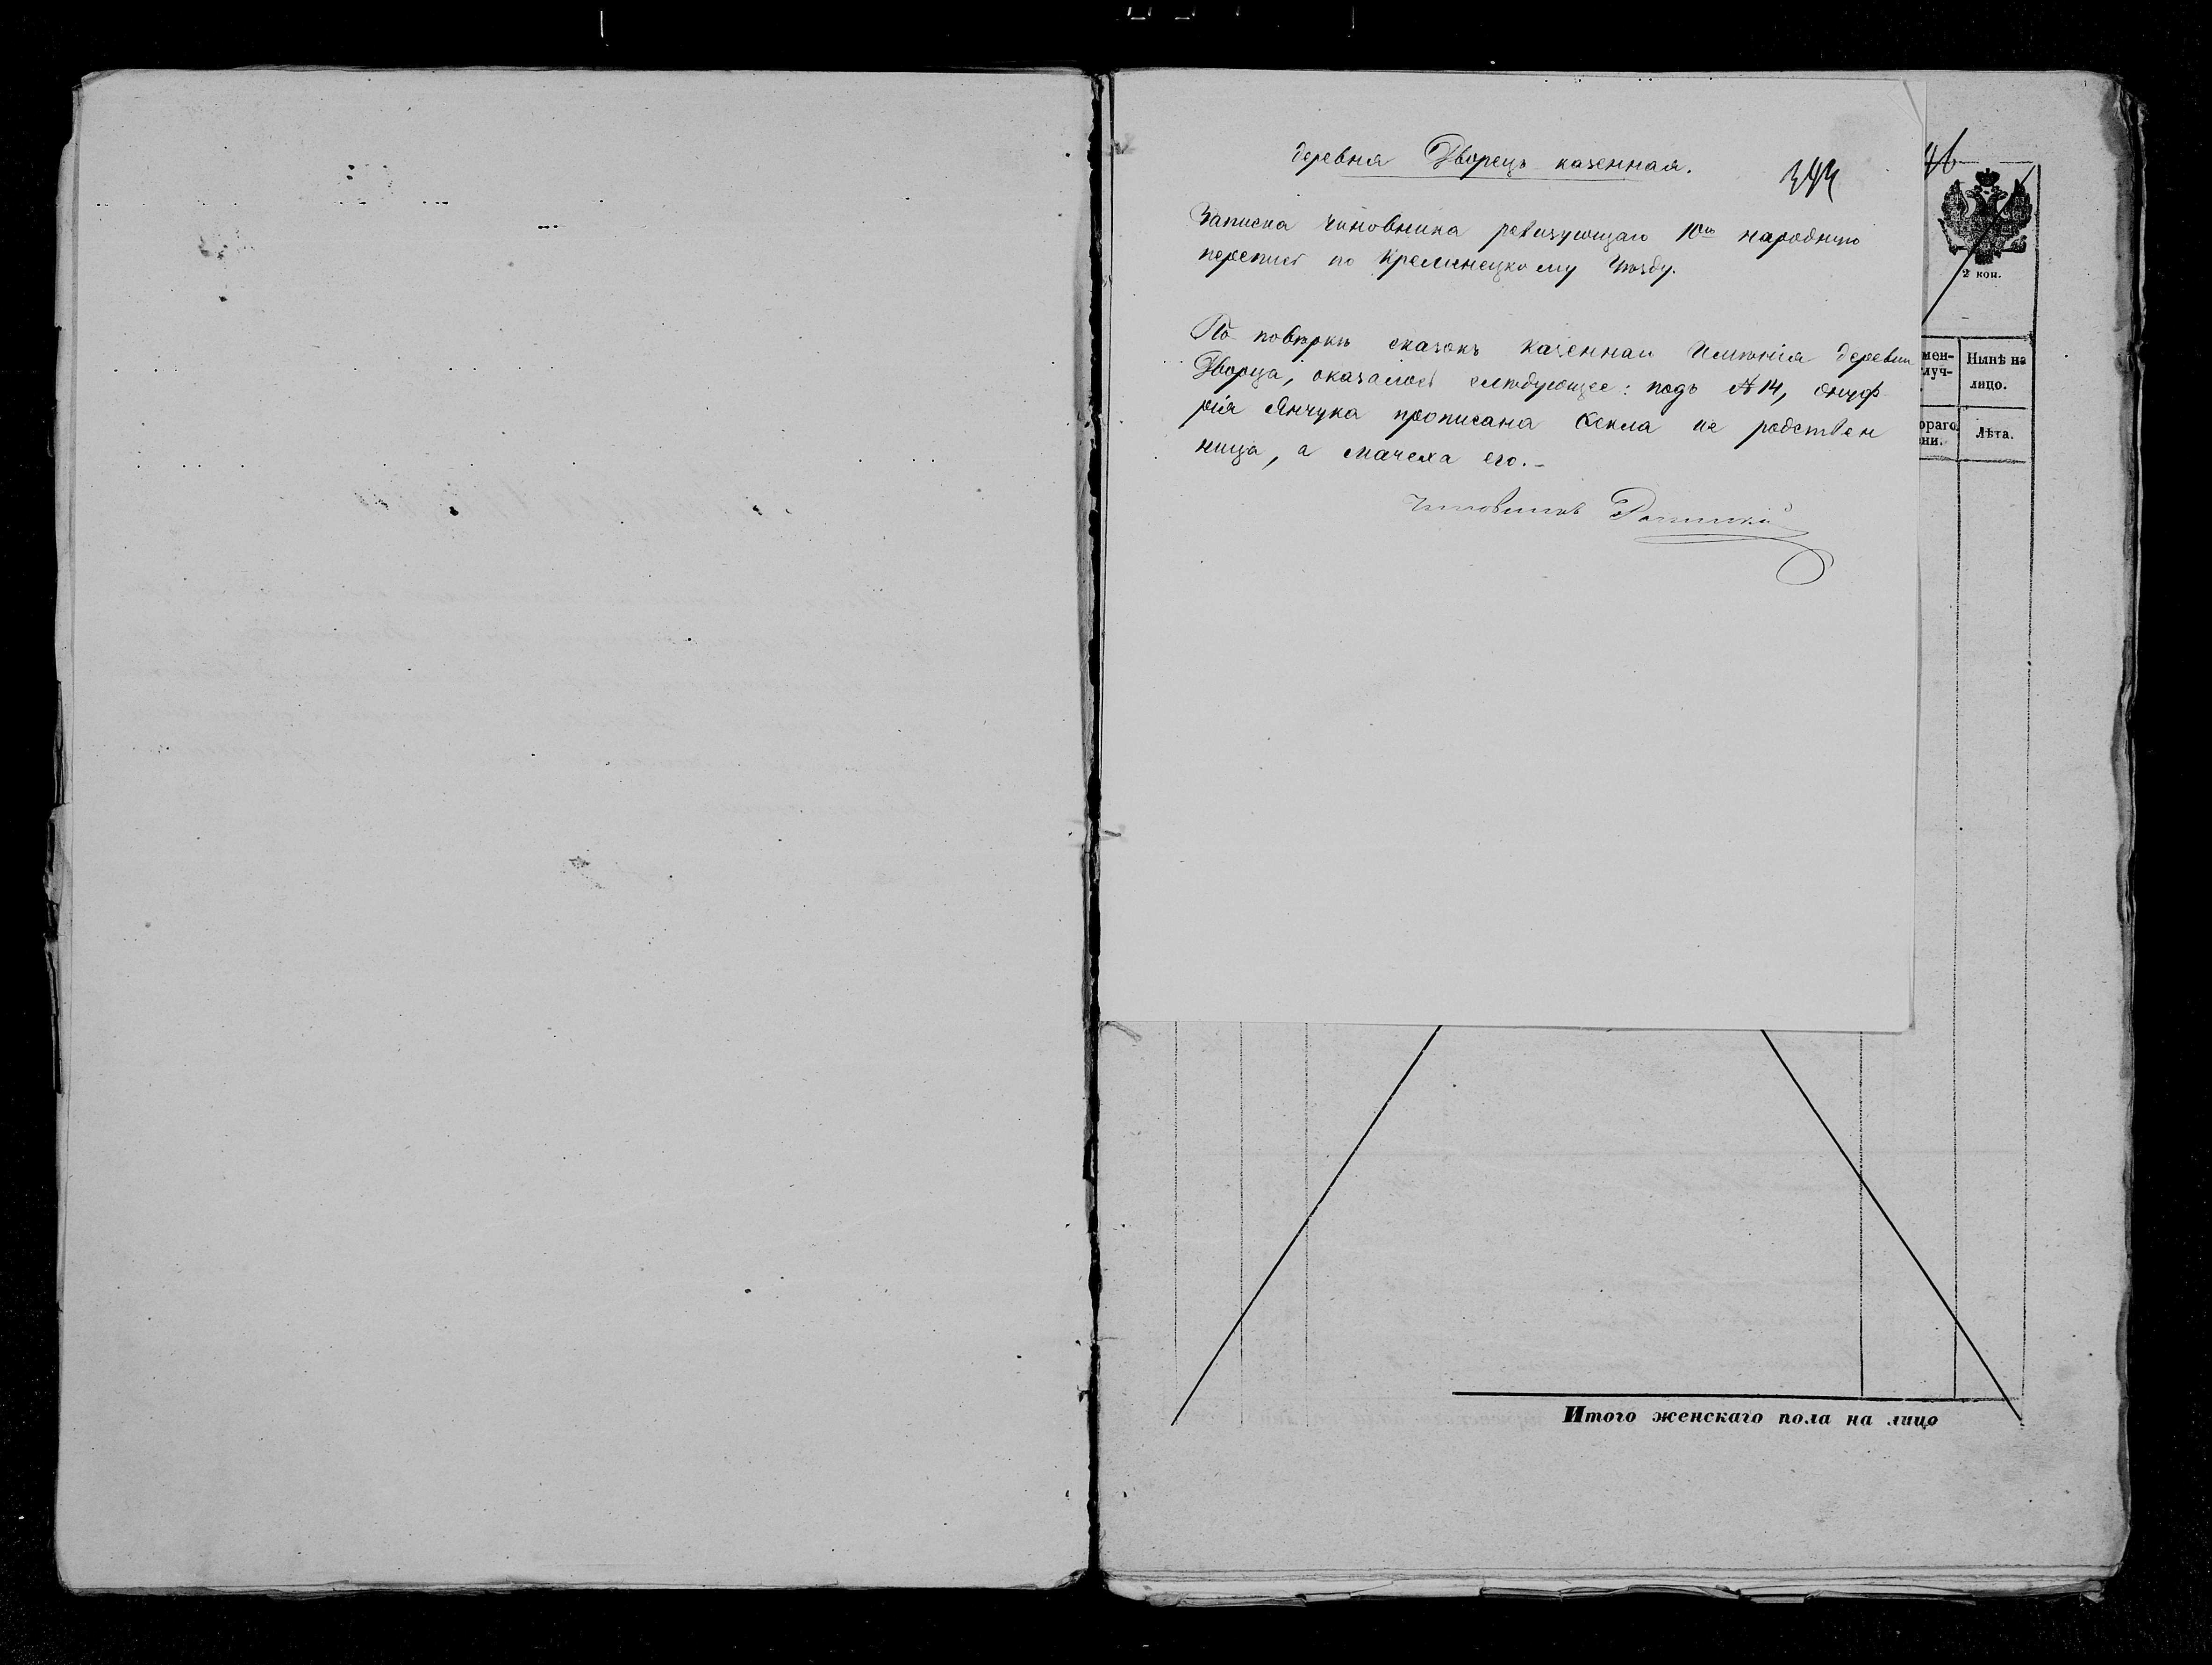 деревня Дворецъ казенная.
343
Записка чиновника ревизующаго 10ю народную
перепись по Кременецкому Уѣзду.
По повѣркѣ сказокъ казеннаго Имѣнія деревни
Дворца, оказалось слѣдующее: подъ № 14, Онуф
рія Янчука прописана Фекла не родствен
ница, а мачеха его.
Чиновникъ
2 коп.
мен-
луч-
Нынѣ на
лицо.
ораго
ни.
Лѣта.
Итого женскаго пола на лицо